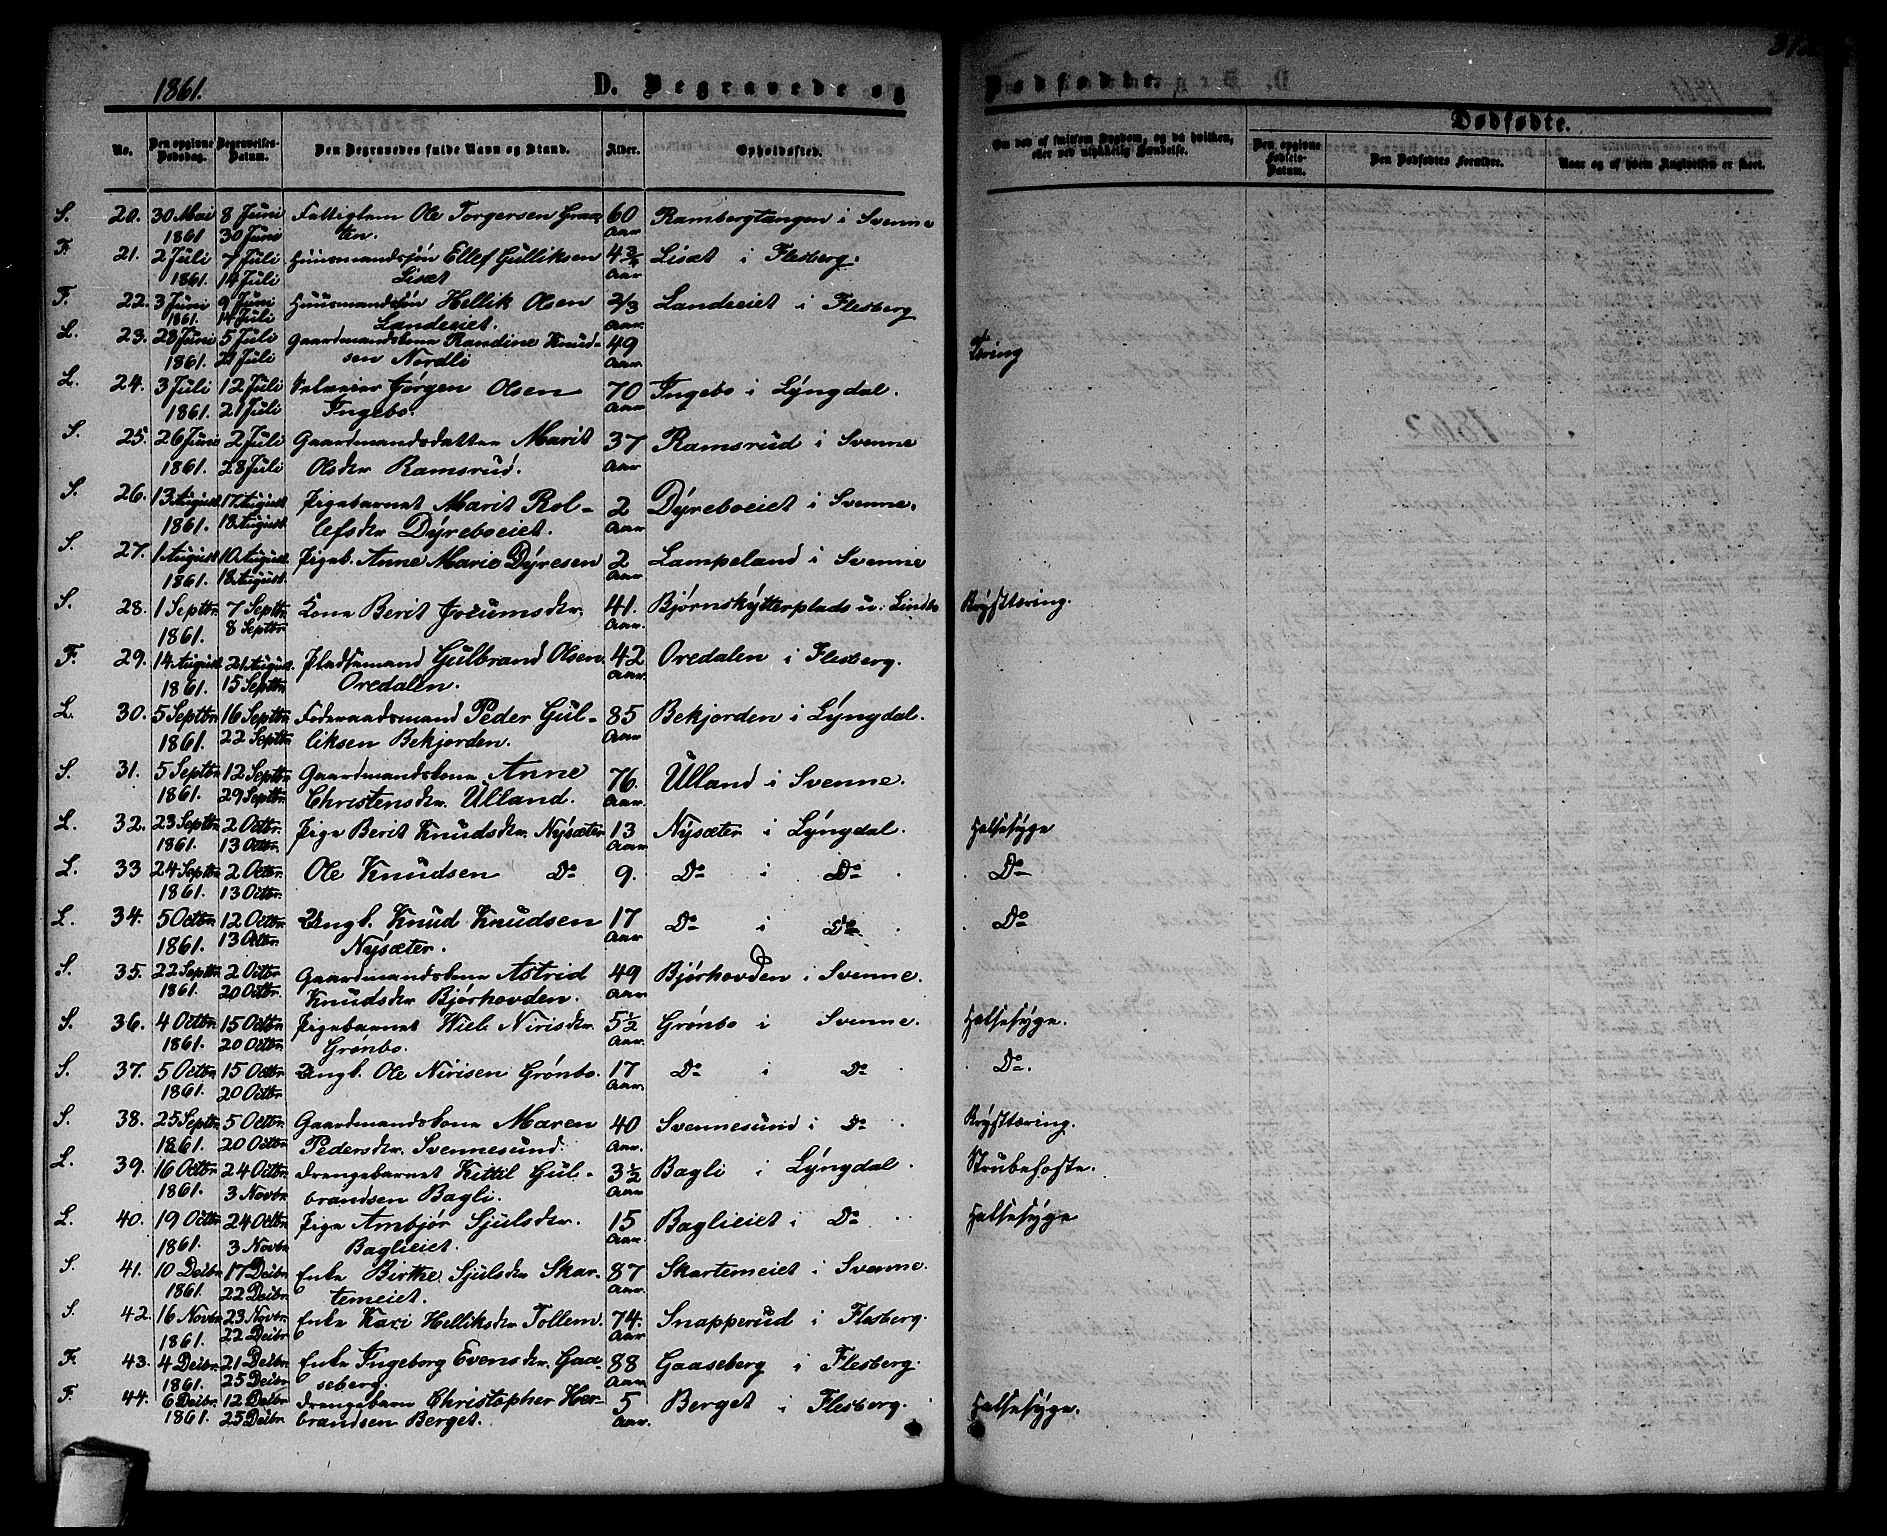 1861.
D. Begravede og
Dødfødte.
Dødfødte.
No.
Den opgivne Dødsdag.
Begravelses-Datum.
Den Begravedes fulde Navn og Stand.
Alder.
Opholdssted.
Om død af smitsom Sygdom, og da hvilken, eller ved ulykkelig Hændelse.
Den opgivne Fødsels-Datum.
Den Dødfødtes Forældre.
Naar og af hvem Anmeldelsen er skeet.
S. 20. 30 Mai 8 Juni Fattiglem Ole Torgersen 60 Rambergtangen i Svenne
1861 30 Juni ten. Aar
F. 21. 2 Juli 7 Juli Huusmandssøn Ellef Gulliksen 4 3/4 Lisæt i Flesberg.
1861 14 Juli Lisæt Aar
F. 22. 3 Juni 9 Juni Huusmandssøn Hellik Olsen 2/3 Landeeiet i Flesberg
1861. 14 Juli Landeeiet. Aar.
L. 23. 28 Juni 5 Juli Gaardmandskone Randine Knud- 49
1861. 21 Juli sen Nordli Aar
Tæring
L. 24. 3 Juli 12 Juli Jørgen Olsen 70 Ingebo i Lyngdal.
1861. 21 Juli Ingebo. Aar
S. 25. 26 Juni 2 Juli Gaardmandsdatter Marit 37 Ramsrud i Svenne
1861. 28 Juli Olsdr Ramsrud. Aar
S. 26. 13 August 17 August Pigebarnet Marit Rol- 2 Dyreboeiet i Svenne.
1861. 18 August lefsdr Dyreboeiet. Aar
S. 27. 1 August 10 August Pigeb. Anne Marie Dyresen 2 Lampeland i Svenne
1861. 18 August. Aar
S. 28. 1 Septbr 7 Septbr Kone Berit Joramsdr. 41. Bjørnskytterplads u: Linde Brysttæring.
1861. 8 Septbr Aar.
F. 29. 14 August 21 August. Pladsemand Gulbrand Olsen 42 Oredalen i Flesberg.
1861. 15 Septbr Oredalen. Aar.
L. 30. 5 Septbr 16 Septbr Føderaadsmand Peder Gul- 85 Bekjorden i Lyngdal.
1861. 22 Septbr liksen Bekjorden. Aar
S. 31. 5 Septbr 12 Septbr Gaardmandskone Anne 76. Ulland i Svenne.
1861. 29 Septbr. Christensdr. Ulland. Aar.
L. 32. 23 Septbr 2 Octbr. Pige Berit Knudsdr. Nysæter 13 Nysæter i Lyngdal. Halsesyge
1861. 13 Octbr. Aar.
L. 33 24 Septbr 2 Octbr. Ole Knudsen Do 9. Do i Do Do
1861. 13 Octbr.
L. 34. 5 Octbr. 12 Octbr Ungk. Knud Knudsen 17 Do i Do Do
1861. 13 Octbr. Nysæter. Aar
S. 35. 22 Septbr 2 Octbr Gaardmandskone Astrid 49 Bjørhovden i Svenne.
1861. 20 Octbr. Knudsdr Bjørhovden. Aar
S. 36. 4 Octbr. 15 Octbr Pigebarnet Nirisdr. 5 1/2 Grønbo i Svenne. Halsesyge.
1861. 20 Octbr. Grønbo. Aar.
S. 37. 5 Octbr 15 Octbr Ungk. Ole Nirisen Grønbo. 17 Do i Do Do.
1861. 20 Octbr Aar.
S. 38. 25 Septbr 5 Octbr Gaardmandskone Maren 40 Svennesund i Do Brysttæring.
1861. 20 Octbr Pedersdr. Svennesund. Aar.
L. 39. 16 Octbr 24 Octbr Drengebarnet Kittil Gul- 3 1/2 Bagli i Lyngdal. Strubehoste.
1861. 3 Novbr. brandsen Bagli. Aar
L. 40. 19 Octbr 24 Octbr Pige Ambjør Sjulsdr. 15 Baglieiet i Do Halsesyge
1861. 3 Novbr Baglieiet. Aar.
S. 41. 10 Decbr 17 Decbr Enke Birthe Sjulsdr Skar- 87 Skartemeiet i Svenne.
1861. 22 Decbr. temeiet. Aar.
S. 42. 16 Novbr 23 Novbr. Enke Kari Helliksdr Tollem. 74. Snapperud i Flesberg.
1861. 22 Decbr Aar
F. 43. 4 Decbr. 21 Decbr. Enke Ingeborg Evensdr. Gaa- 88 Gaaseberg i Flesberg.
1861. 25 Decbr seberg. Aar
F. 44. 6 Decbr. 12 Decbr Drengebarn Christopher Her- 5 Berget i Flesberg. Halsesyge.
1861. 25 Decbr brandsen Berget. Aar.